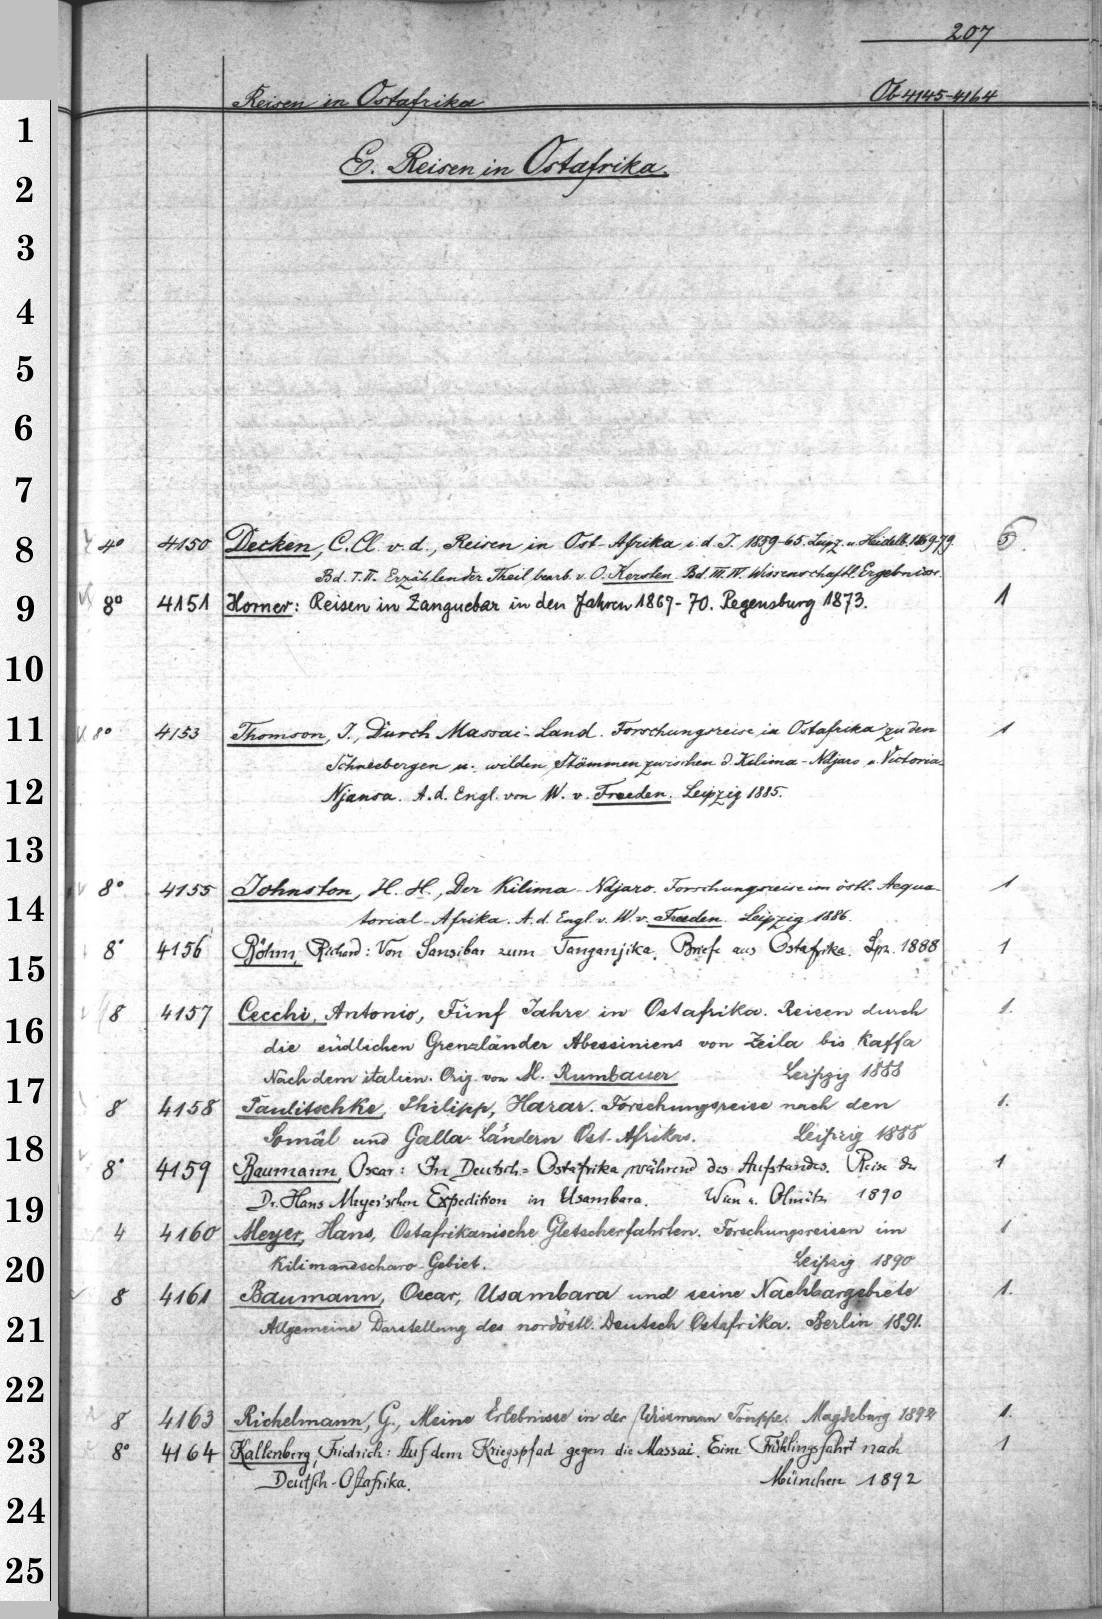 207
Reisen in Ostafrika Ob 4145-4164
1
E. Reisen in Ostafrika.
2
3
4
5
6
7
8
4° 4150 Decken, C. Cl. v. d., Reisen in Ost-Afrika i. d. J. 1859-65. Leipz. u. Heidelb. 1869-79. 5
Bd. I. II. Erzählender Theil bearb. v. O. Kersten. Bd. III. IV. Wissenschaftl. Ergebnisse.
9
8° 4151 Horner: Reisen in Zanguebar in den Jahren 1867-70. Regensburg 1873. 1
10
11
8° 4153 Thomson, J., Durch Massai-Land. Forschungsreise in Ostafrika zu den 1
Schneebergen u. wilden Stämmen zwischen d. Kilima-Ndjaro u. Victoria-
12
Njansa. A. d. Engl. von W. v. Freeden. Leipzig 1885.
13
8° 4155 Johnston, H. H., Der Kilima-Ndjaro. Forschungsreise im östl. Aequa- 1
14
torial-Afrika. A. d. Engl. v. W. v. Freeden. Leipzig 1886.
8° 4156 Böhm, Richard: Von Sansibar zum Tanganjika. Briefe aus Ostafrika. Lpz. 1888 1
15
8 4157 Cecchi, Antonio, Fünf Jahre in Ostafrika. Reisen durch 1.
16
die südlichen Grenzländer Abessiniens von Zeila bis Kaffa
Nach dem italien. Orig. von M. Rumbauer Leipzig 1888
17
8 4158 Paulitschke, Philipp, Harar. Forschungsreise nach den 1.
18
Somâl und Galla-Ländern Ost-Afrikas. Leipzig 1888
8° 4159 Baumann, Oscar: In Deutsch-Ostafrika während des Aufstandes. Reise der 1
19
Dr. Hans Meyer'schen Expedition in Usambara. Wien u. Olmütz 1890
4 4160 Meyer, Hans, Ostafrikanische Gletscherfahrten. Forschungsreisen im 1
20
Kilimandscharo-Gebiet. Leipzig 1890
8 4161 Baumann, Oscar, Usambara und seine Nachbargebiete 1.
21
Allgemeine Darstellung des nordöstl. Deutsch Ostafrika. Berlin 1891.
22
8 4163 Richelmann, G., Meine Erlebnisse in der Wissmann Truppe. Magdeburg 1892 1.
23
8° 4164 Kallenberg, Friedrich: Auf dem Kriegspfad gegen die Massai. Eine Frühlingsfahrt nach 1
Deutsch-Ostafrika. München 1892
24
25